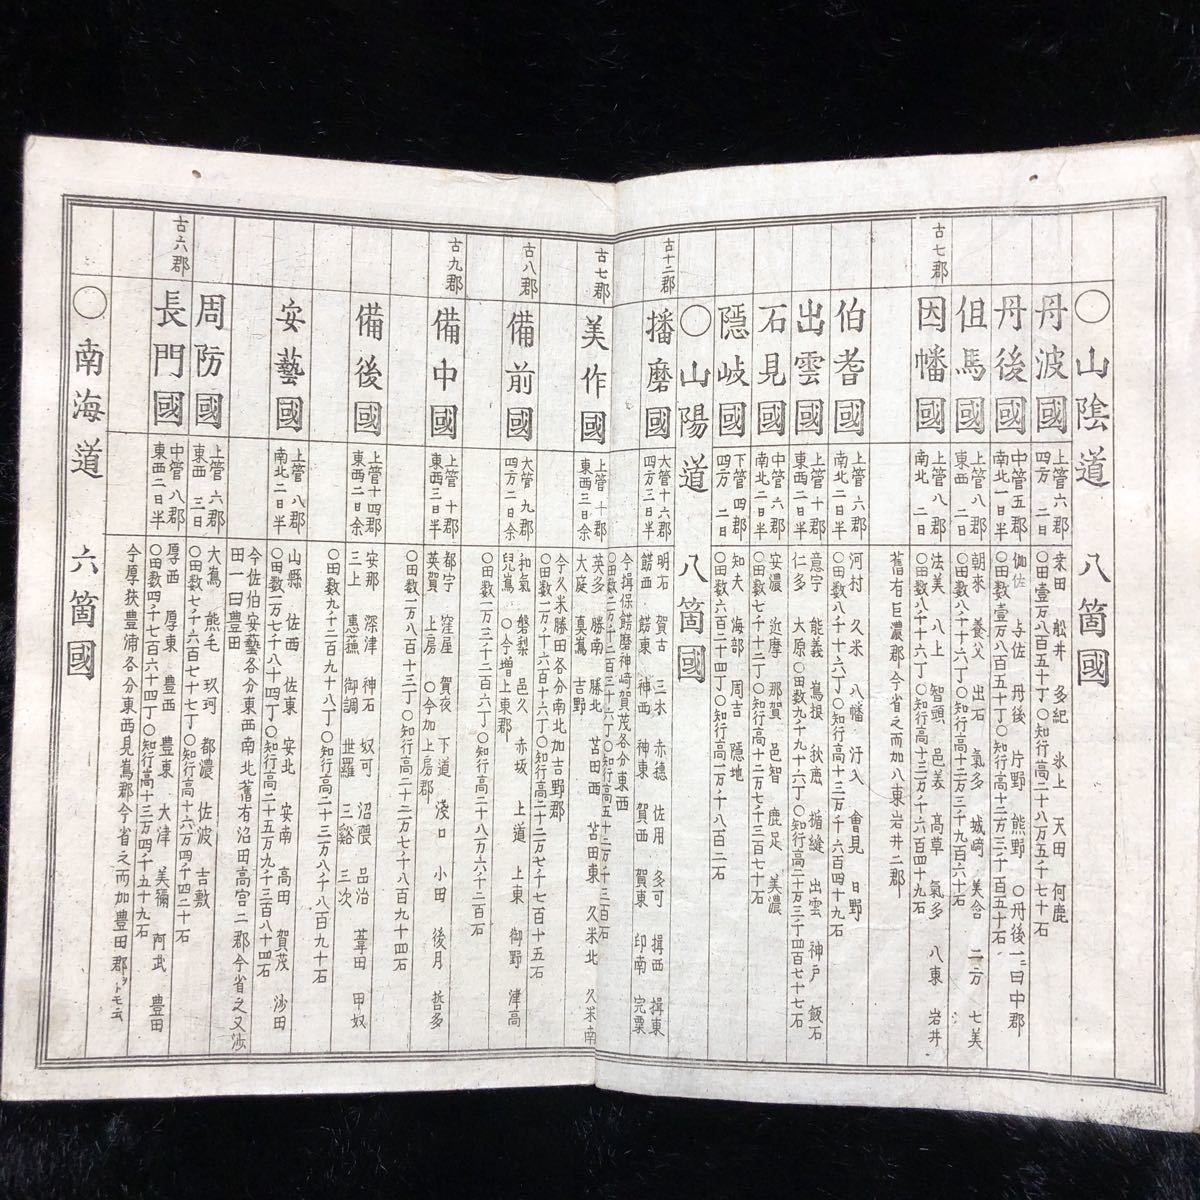 ○山陰道 八箇國
丹波國
上管六郡
四方二日
桒田 舩井 多紀 氷上 天田 何鹿
○田数壹万八百五十丁○知行高二十八万五千七十一石
丹後國
中管五郡
南北一日半
伽佐 与佐 丹後 片野 熊野 ○丹後一ニ曰中郡
○田数壹万八百五十五丁○知行高十二万三千百五十石
但馬國
上管八郡
東西二日
朝來 養父 出石 氣多 城﨑 美含 二方 七美
○田数八千十六丁○知行高十三万三千九百六十石
古七郡
因幡國
上管八郡
南北二日
法美 八上 智頭 邑美 高草 氣多 八東 岩井
○田数八千十六丁○知行高十三万千六百四十九石
舊有巨濃郡今省之而加八東岩井二郡
伯耆國
上管六郡
河村 久米 八幡 汙入 會見 日野
○田数八千十六丁○知行高十三万千六百四十九石
出雲國
上管十郡
東西二日半
意宇 能義 嶌根 秋鹿 楯縫 出雲 神戸 飯石
仁多 大原○田数九千九十六丁○知行高二十万三千四百七十七石
石見國
中管六郡
南北二日
安濃 迩摩 那賀 邑智 鹿足 美濃
○田数七千十三丁○知行高十二万七千三百七十石
隠岐國
下管四郡
四方二日
知夫 海部 周吉 隠地
○田数六百二十四丁○知行高一万千八百二石
○山陽道 八箇國
古十二郡
播磨國
大管十六郡
四方三日半
明石 賀古 三木 赤穂 佐用 多可 揖西 揖東
餝西 餝東 神西 神東 賀西 賀東 印南 完粟
今揖保餝磨神﨑賀茂各分東西
○田数二万千二百三十六丁○知行高五十二万千三百石
古七郡
美作國
上管十郡
東西三日余
英多 勝南 勝北 苫田西 苫田東 久米北 久米南
大庭 真嶌 吉野
今久米勝田各分南北加吉野郡
○田数一万千六百十六丁○知行高二十二万七千七百十五石
古八郡
備前國
大管九郡
四方二日余
和氣 磐梨 邑久 赤坂 上道 上東 御野 津高
兒嶌 ○今増上東郡
○田数一万三千二百六丁○知行高二十八万六千二百石
古九郡
備中國
上管十郡
東西三日半
都宇 窪屋 賀夜 下道 淺口 小田 後月 哲多
英賀 上房 ○今加上房郡
○田数一万八百十三丁○知行高二十二万七千八百九十四石
備後國
上管十四郡
東西二日余
安那 深津 神石 奴可 沼隈 品治 葦田 甲奴
三上 惠蘓 御調 世羅 三谿 三次
○田数九千二百九十八丁○知行高二十三万八千八百九十石
安藝國
上管八郡
南北二日半
山縣 佐西 佐東 安北 安南 高田 賀茂 沙田
○田数一万七千八十四丁○知行高二十五万九千三百八十四石
今佐伯安藝各分東西南北舊有沼田高宮二郡今省之又沙
田一曰豊田
周防國
上管六郡
東西三日
大嶌 熊毛 玖珂 都濃 佐波 吉敷
○田数七千六百七十七丁○知行高十六万四千四百二十石
古六郡
長門國
中管八郡
東西二日半
厚西 厚東 豊西 豊東 大津 美彌 阿武 豊田
○田数四千七百六十四丁○知行高十三万四千五十九石
今厚狹豊浦各分東西見嶌郡今省之而加豊田郡ヲトモ云
○南海道 六箇國